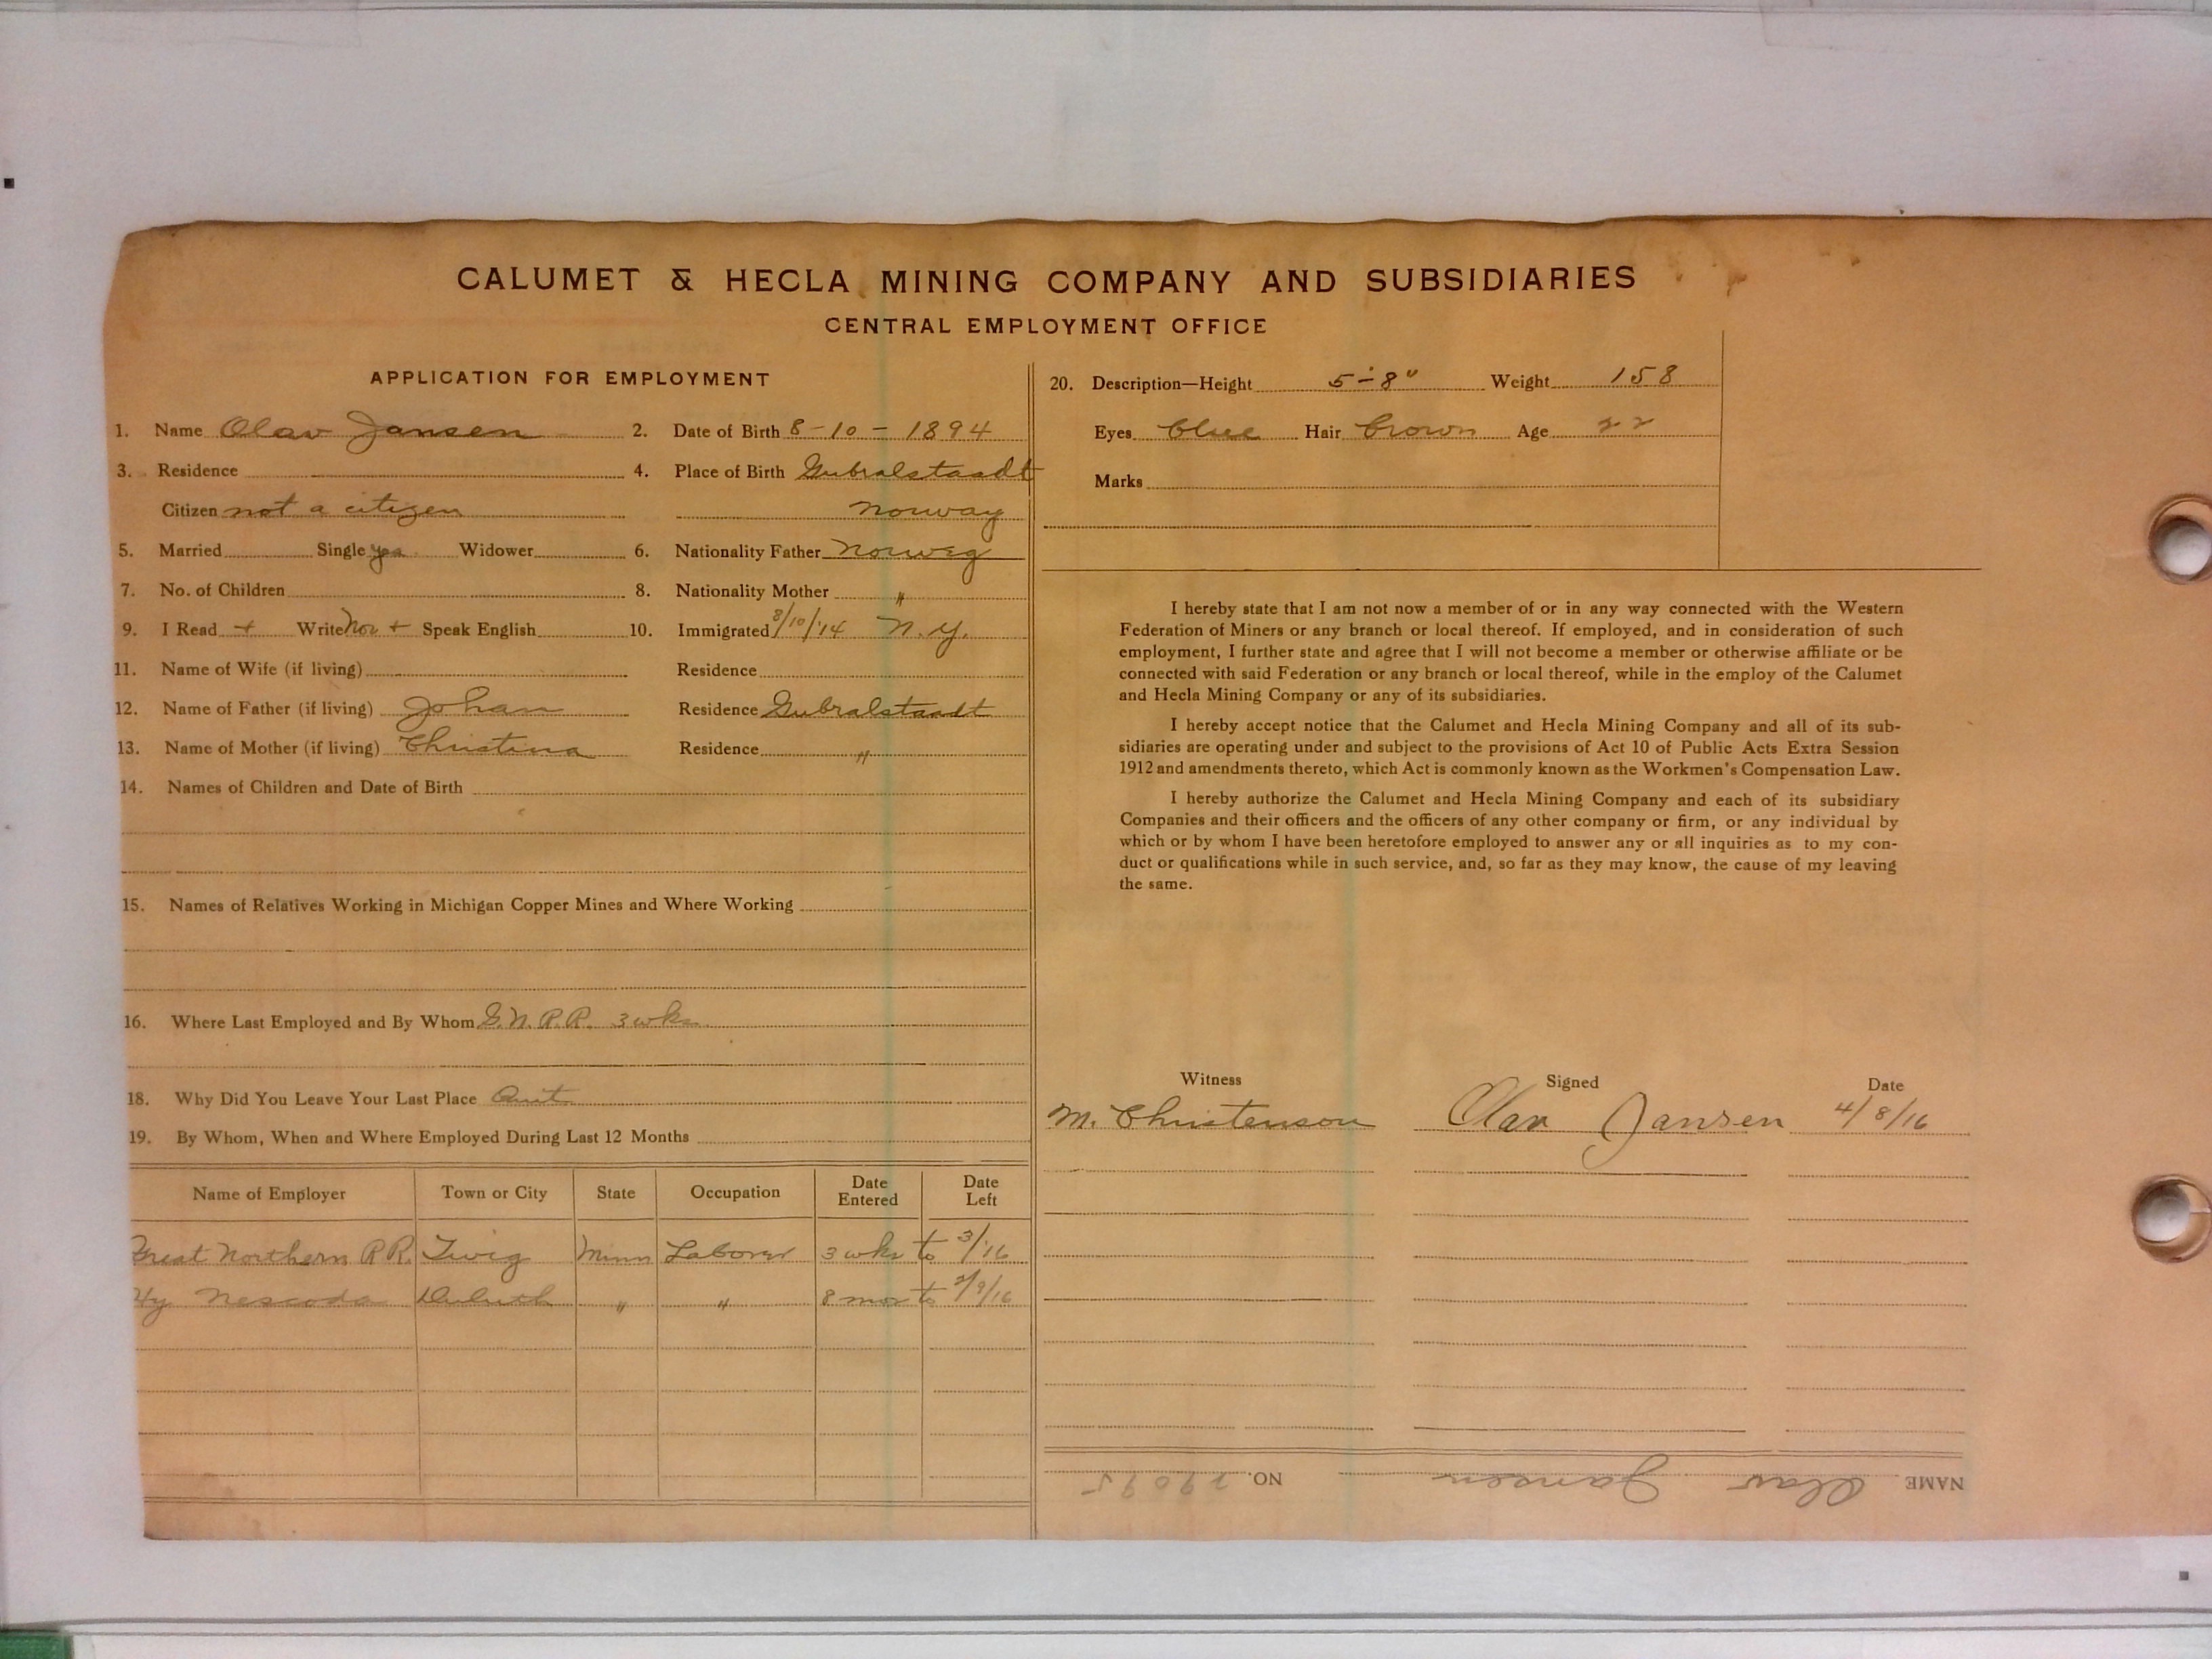 CALUMET & HECLA MINING COMPANY AND SUBSIDIARIES
CENTRAL EMPLOYMENT OFFICE
APPLICATION FOR EMPLOYMENT
1. Name Olav Jansen 2. Date of Birth 8-10-1894
3. Residence 4. Place of Birth Gubralstaadt
Citizen not a citizen Norway
5. Married Single yes Widower 6. Nationality Father Norweg
7. No. of Children 8. Nationality Mother "
9. I Read + Write Nor + Speak English 10. Immigrated 8/10/'14 N.Y.
11. Name of Wife (if living) Residence
12. Name of Father (if living) Johan Residence Gubralstaadt
13. Name of Mother (if living) Christina Residence "
14. Names of Children and Date of Birth
15. Names of Relatives Working in Michigan Copper Mines and Where Working
16. Where Last Employed and By Whom G.N.R.R. 3 wks
18. Why Did You Leave Your Last Place Quit
19. By Whom, When and Where Employed During Last 12 Months
Name of Employer Town or City State Occupation Date Entered Date Left
Great Northern R R. Twig Minn Laborer 3 wks to 3/'16
Hy Duluth " " 8 mos to 2/9/16
20. Description—Height 5-8" Weight 158
Eyes blue Hair brown Age 22
Marks
I hereby state that I am not now a member of or in any way connected with the Western
Federation of Miners or any branch or local thereof. If employed, and in consideration of such
employment, I further state and agree that I will not become a member or otherwise affiliate or be
connected with said Federation or any branch or local thereof, while in the employ of the Calumet
and Hecla Mining Company or any of its subsidiaries.
I hereby accept notice that the Calumet and Hecla Mining Company and all of its sub-
sidiaries are operating under and subject to the provisions of Act 10 of Public Acts Extra Session
1912 and amendments thereto, which Act is commonly known as the Workmen's Compensation Law.
I hereby authorize the Calumet and Hecla Mining Company and each of its subsidiary
Companies and their officers and the officers of any other company or firm, or any individual by
which or by whom I have been heretofore employed to answer any or all inquiries as to my con-
duct or qualifications while in such service, and, so far as they may know, the cause of my leaving
the same.
Witness Signed Date
M. Christenson Olav Jansen 4/8/16
NAME Olav Jansen NO. 29095